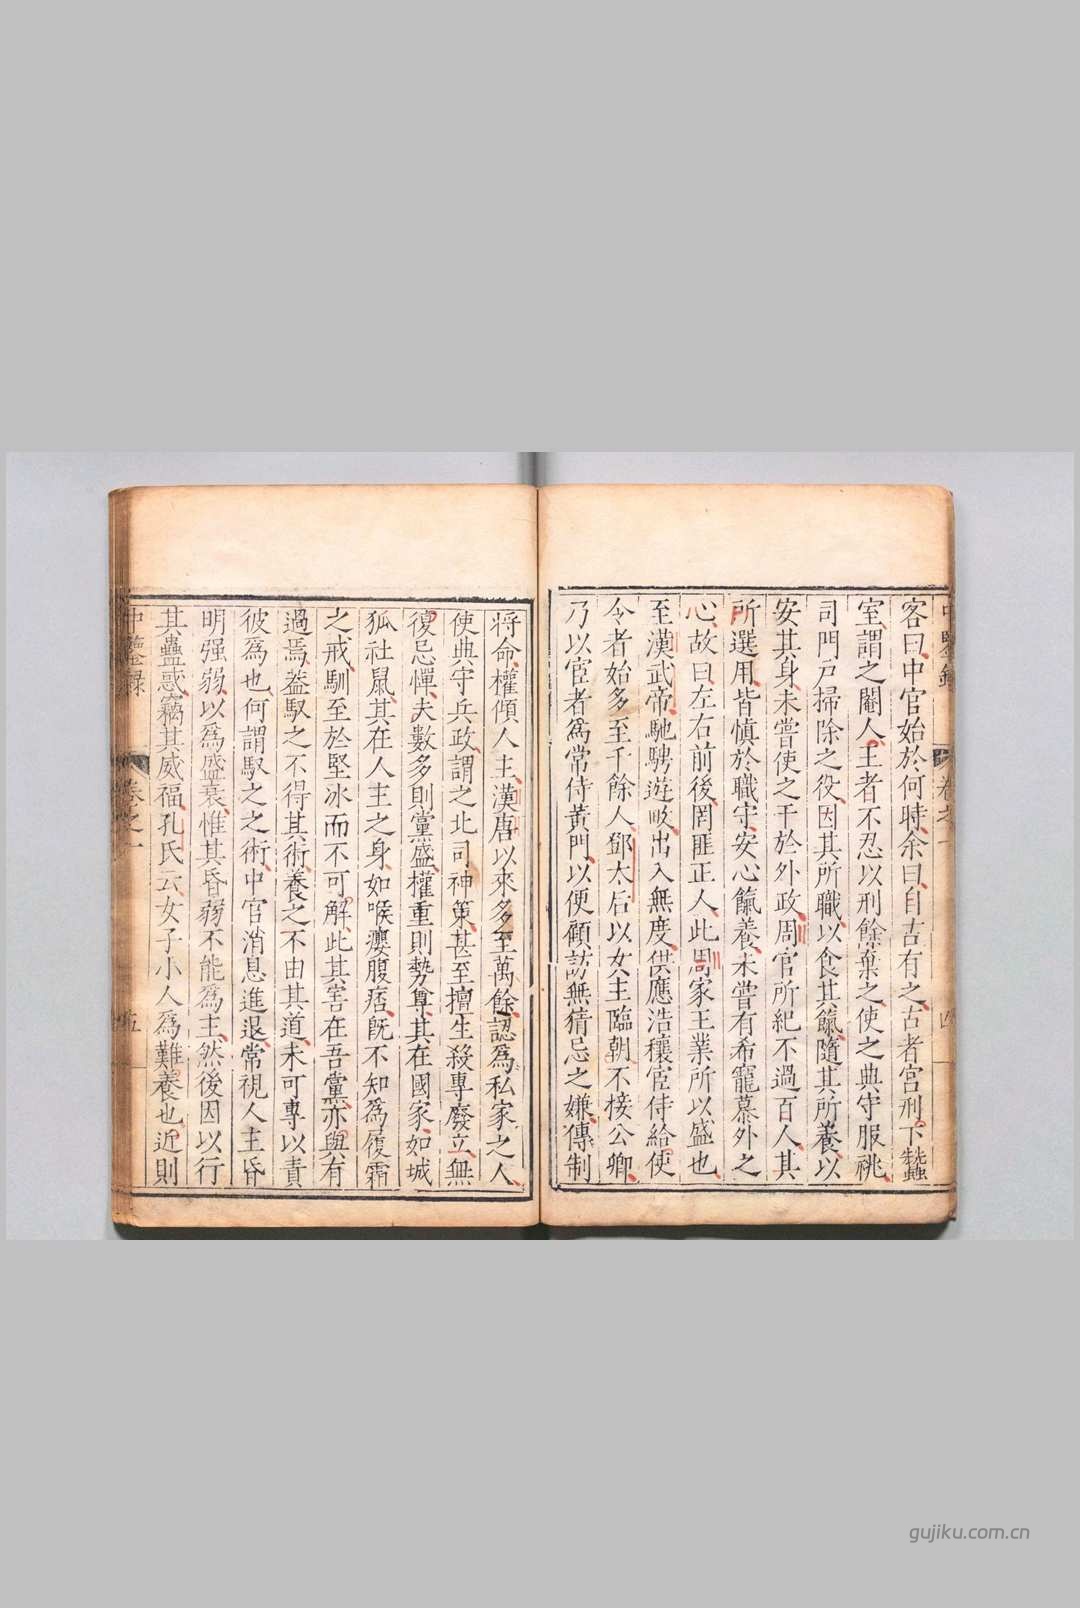 客曰中官始於何時余曰自古有之古者宮刑下蠶
室謂之閹人王者不忍以刑餘棄之使之典守服祧
司門戶掃除之役因其所職以食其餼隨其所養以
安其身未嘗使之干於外政周官所紀不過百人其
所選用皆慎於職守安心餼養未嘗有希寵慕外之
心故曰左右前後罔匪正人此周家王業所以盛也
至漢武帝馳騁遊畋出入無度供應浩穰宦侍給使
令者始多至千餘人鄧太后以女主臨朝不接公卿
乃以宦者爲常侍黃門以便顧訪無猜忌之嫌傳制
將命權傾人主漢唐以來多至萬餘認爲私家之人
使典守兵政謂之北司神策甚至擅生殺專廢立無
復忌憚夫數多則黨盛權重則勢尊其在國家如城
狐社鼠其在人主之身如喉癭腹痞旣不知爲履霜
之戒馴至於堅冰而不可解此其害在吾黨亦與有
過焉葢馭之不得其術養之不由其道未可專以責
彼爲也何謂馭之之術中官消息進退常視人主昏
明強弱以爲盛衰惟其昏弱不能爲主然後因以行
其蠱惑竊其威福孔氏云女子小人爲難養也近則
中鑒錄 卷之一 四
中鑒錄 卷之一 五
gujiku.com.cn